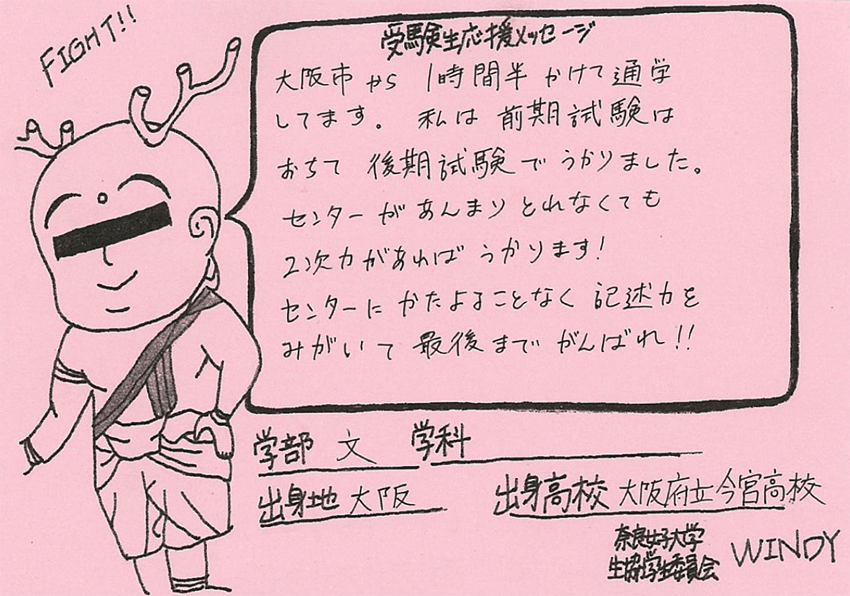 FIGHT!!
受験生応援メッセージ
大阪市から 1時間半かけて通学
してます。私は前期試験は
おちて後期試験でうかりました。
センターがあんまりとれなくても
2次力があればうかります!
センターにかたよることなく記述力を
みがいて最後までがんばれ!!
学部 文 学科
出身地 大阪 出身高校 大阪府立今宮高校
奈良女子大学
生協学生委員会 WINDY